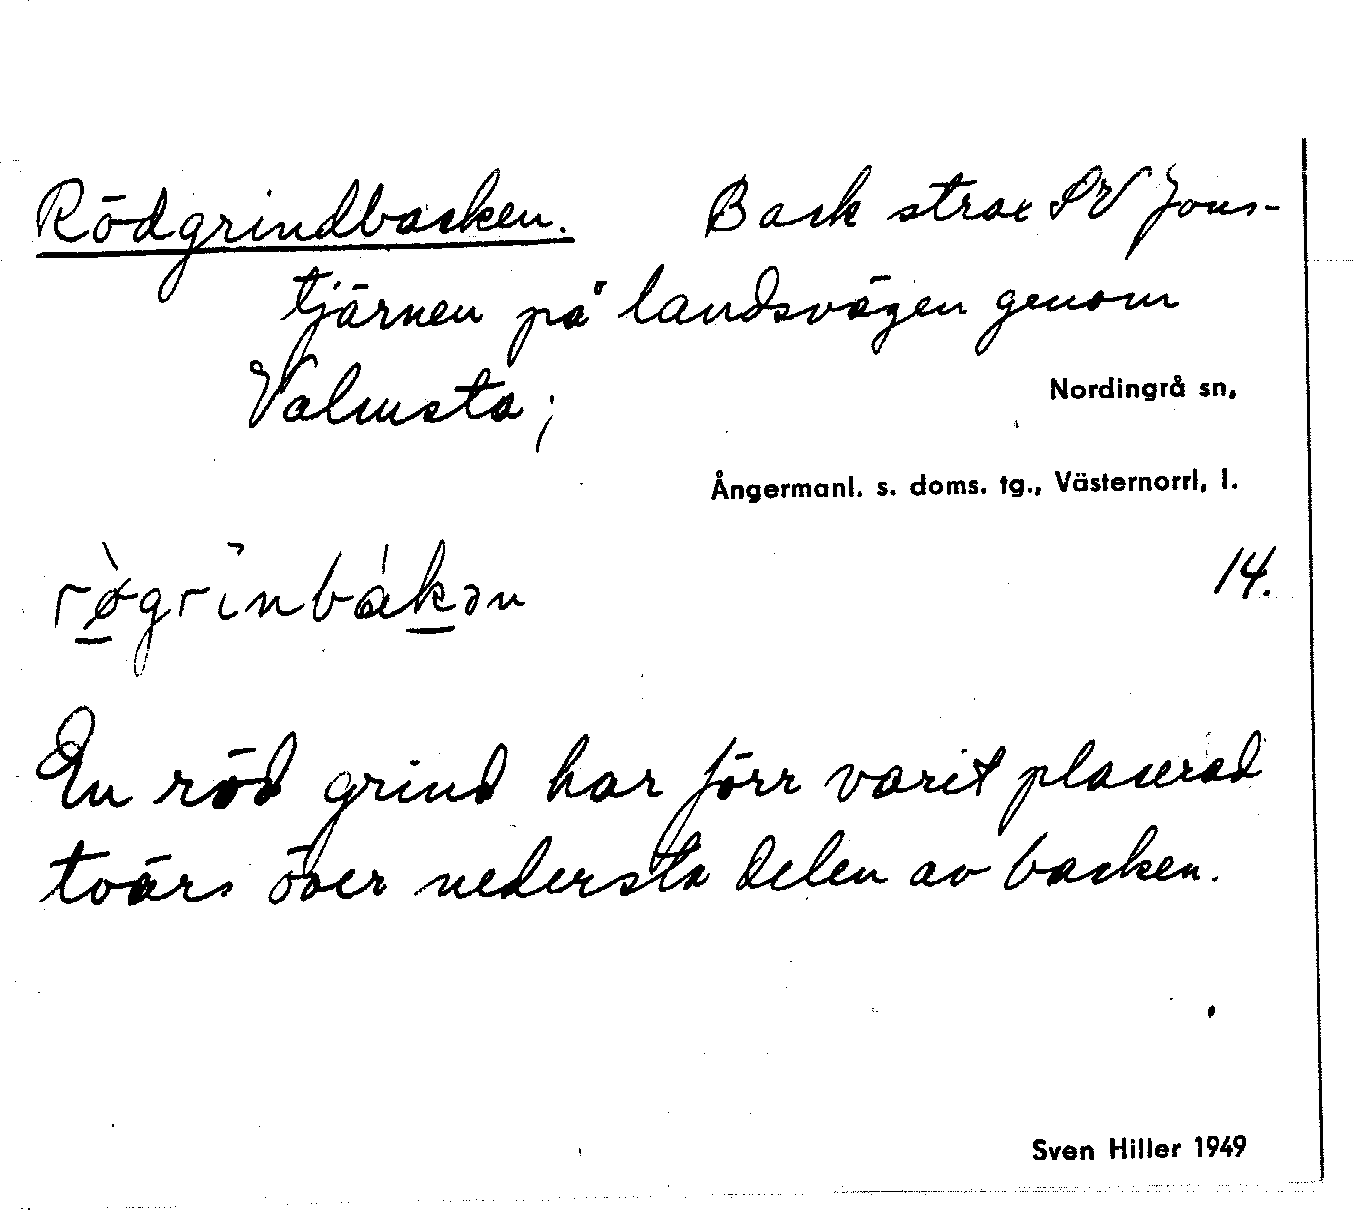 Rödgrindbacken. Back strax SV Jons-
tjärnen på landsvägen genom
Valmsta;
Nordingrå sn,
Ångermanl. s. doms. tg., Västernorrl, l.
rø̀grinbákən
14.
En röd grind har förr varit placerad
tvärs över nedersta delen av backen.
Sven Hiller 1949